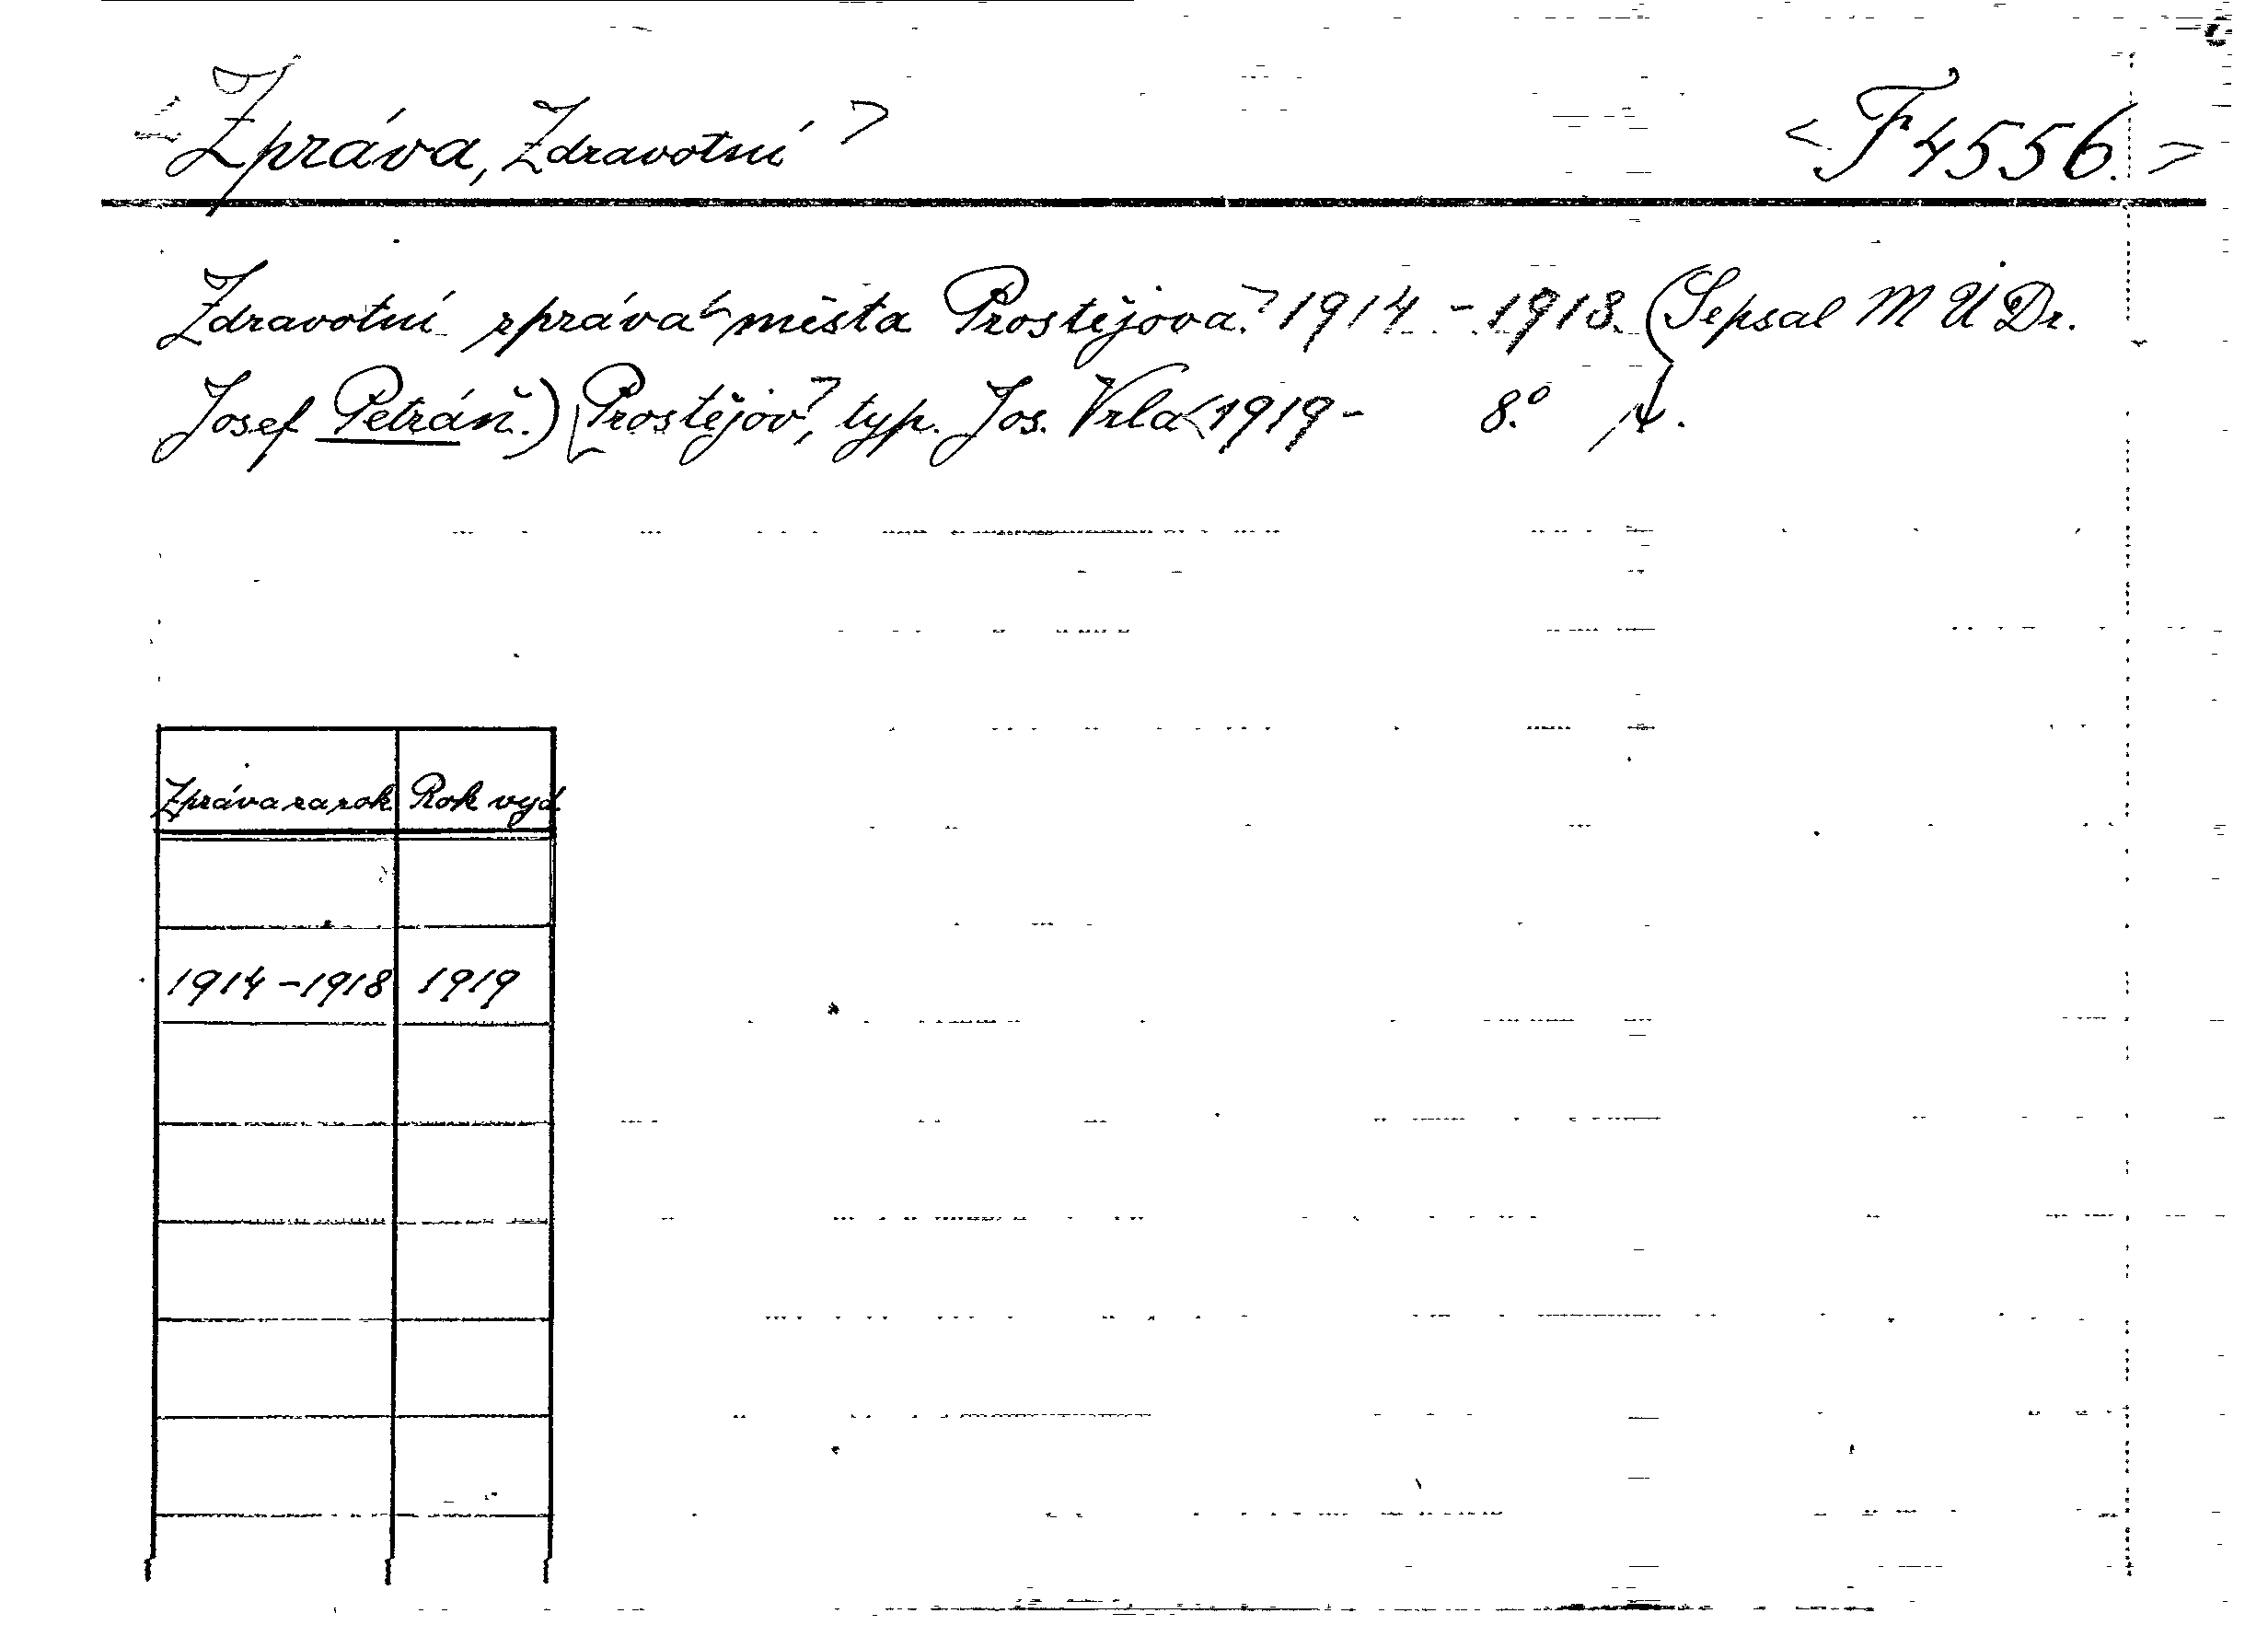 <Zpráva, Zdravotní> <F 4556.>
Zdravotní zpráva města Prostějova. 1914 - 1918. (Sepsal MUDr.
Josef Petráň.) Prostějov, typ. Jos. Vrla 1919- 8.°
Zpráva za rok Rok vyd.
1914-1918 1919